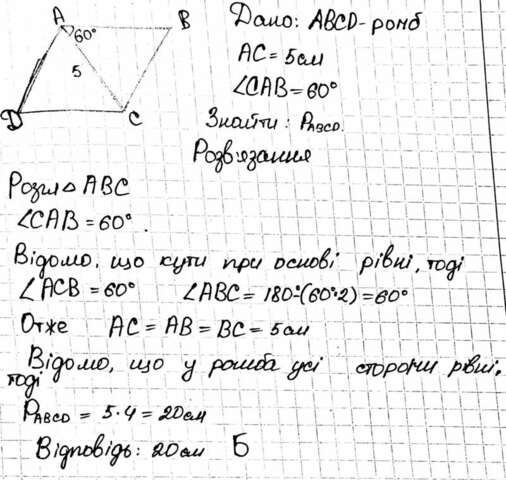 A
B
60°
5
D
C
Дано: ABCD - ромб
AC = 5 см
∠CAB = 60°
Знайти: PABCD.
Розв'язання
Розгл △ ABC
∠CAB = 60°.
Відомо, що кути при основі рівні, тоді
∠ACB = 60° ∠ABC = 180°-(60°·2) = 60°
Отже AC = AB = BC = 5 см
Відомо, що у ромба усі сторони рівні,
тоді
PABCD = 5·4 = 20 см
Відповідь: 20 см Б